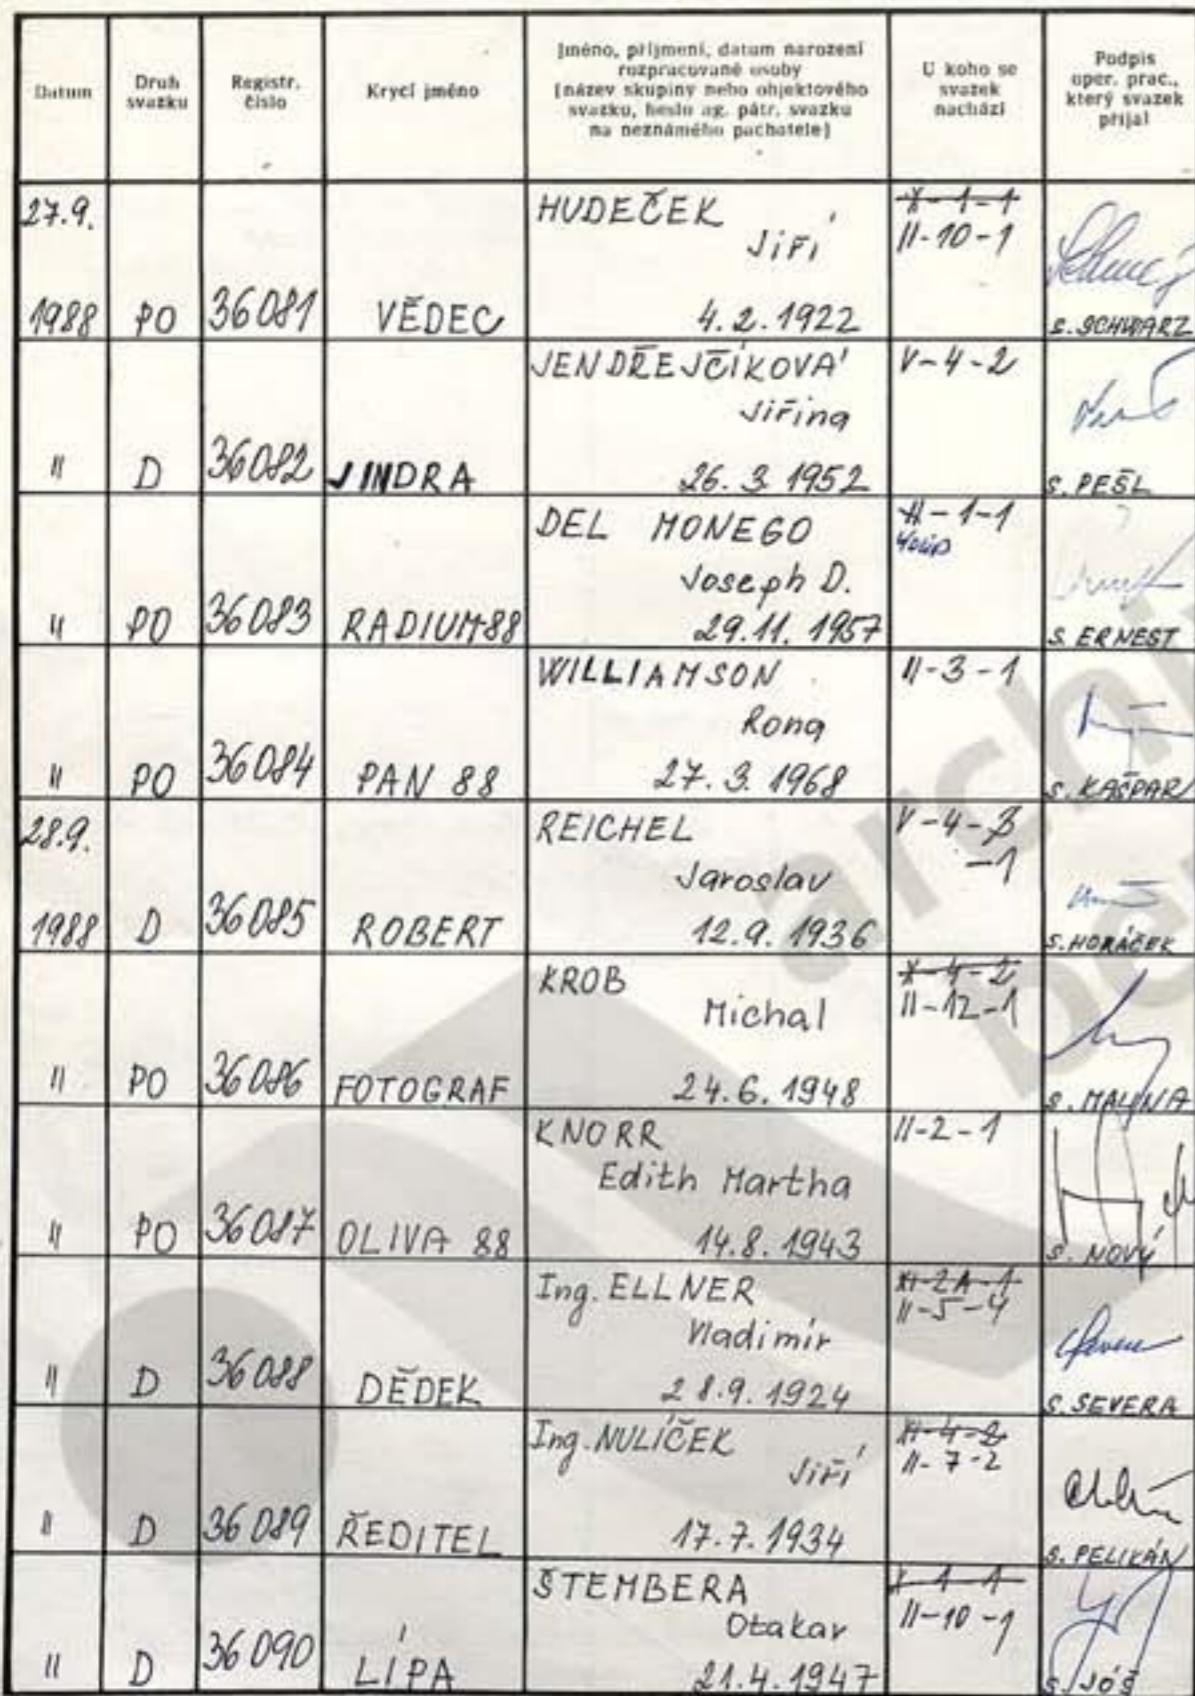 Datum
Druh
svazku
Registr.
číslo
Krycí jméno
Jméno, příjmení, datum narození
rozpracované osoby
(název skupiny nebo objektového
svazku, heslo ag. pátr. svazku
na neznámého pachatele)
U koho se
svazek
nachází
Podpis
oper. prac.,
který svazek
přijal
27.9.
1988 PO 36081 VĚDEC
HUDEČEK
Jiří
4.2.1922
X-1-1
II-10-1
S. SCHWARZ
" D 36082 JINDRA
JENDŘEJČÍKOVÁ
Jiřina
26.3 1952
V-4-2
S. PEŠL
" PO 36083 RADIUM88
DEL MONEGO
Joseph D.
29.11.1957
II-1-1
S. ERNEST
" PO 36084 PAN 88
WILLIAMSON
Rona
27.3.1968
II-3-1
S. KAŠPAR
28.9.
1988 D 36085 ROBERT
REICHEL
Jaroslav
12.9.1936
V-4-3
-1
S. HORÁČEK
" PO 36086 FOTOGRAF
KROB
Michal
24.6.1948
X-4-2
II-12-1
S. MALINA
" PO 36087 OLIVA 88
KNORR
Edith Martha
14.8.1943
II-2-1
S. NOVÝ
" D 36088 DĚDEK
Ing. ELLNER
Vladimír
28.9.1924
XI-2A-1
II-5-4
S. SEVERA
" D 36089 ŘEDITEL
Ing. NULÍČEK
Jiří
17.7.1934
XI-4-2
II-7-2
S. PELIKÁN
" D 36090 LÍPA
ŠTEMBERA
Otakar
21.4.1947
X-1-1
II-10-1
S. JÓŠ